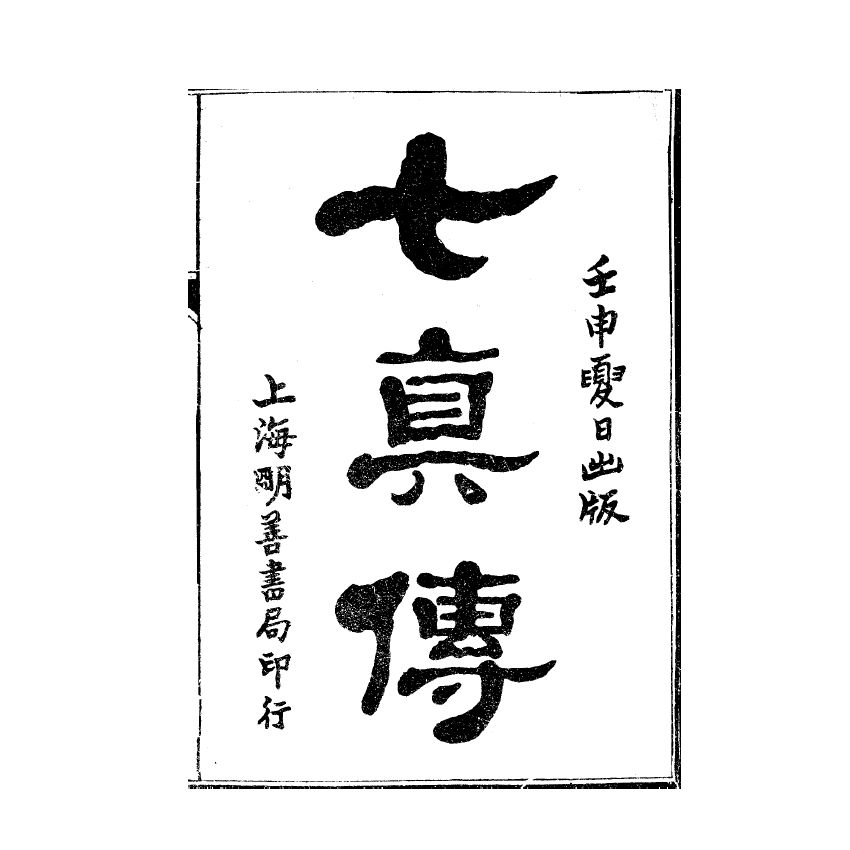 壬申夏日出版
七真傳
上海明善書局印行